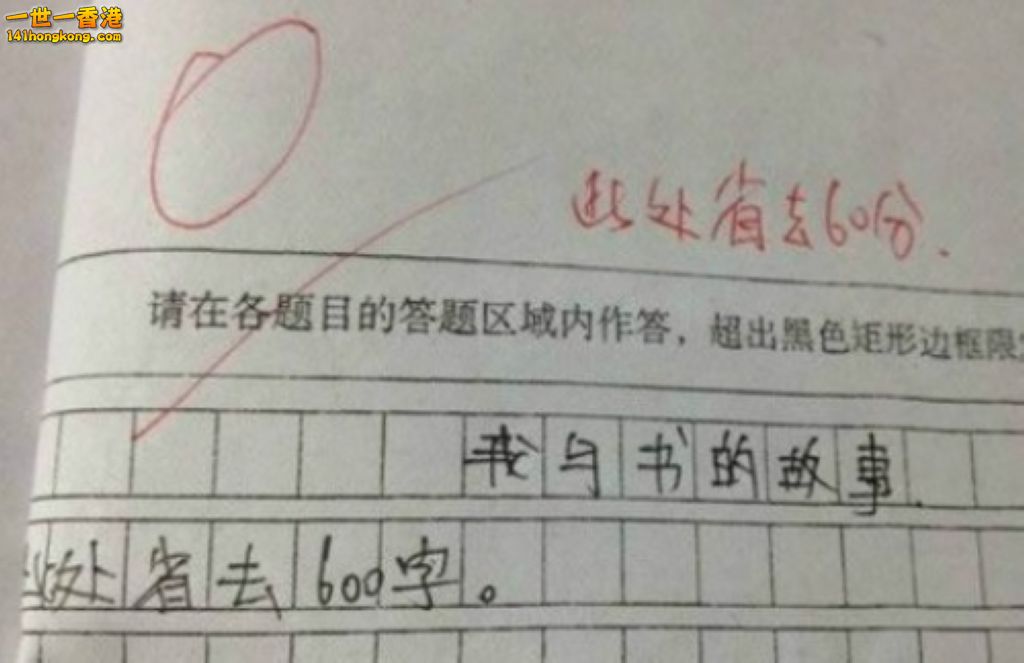 一世一香港
141hongkong.com
0
此处省去60分.
请在各题目的答题区域内作答，超出黑色矩形边框限
我与书的故事
此处省去600字。